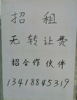 招租
无转让费
招合作伙伴
13418845319